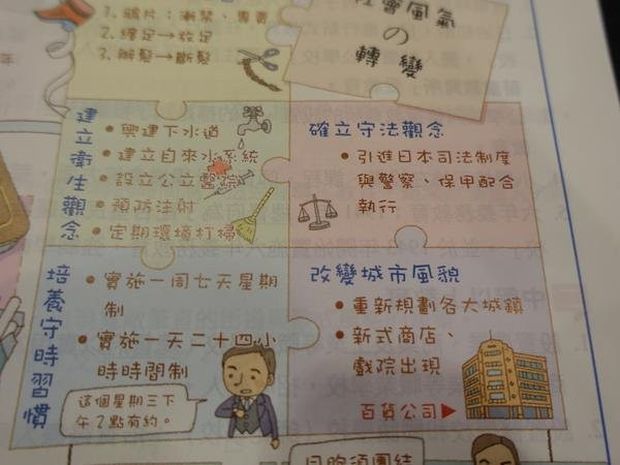 1. 鴉片：漸禁、專賣
2. 纏足→放足
3. 辮髮→斷髮
社會風氣
の
轉變
建立衛生觀念
• 興建下水道
• 建立自來水系統
• 設立公立醫院
• 預防注射
• 定期環境打掃
確立守法觀念
• 引進日本司法制度
與警察、保甲配合
執行
培養守時習慣
• 實施一周七天星期
制
• 實施一天二十四小
時時間制
這個星期三下
午2點有約。
改變城市風貌
• 重新規劃各大城鎮
• 新式商店、
戲院出現
百貨公司▶